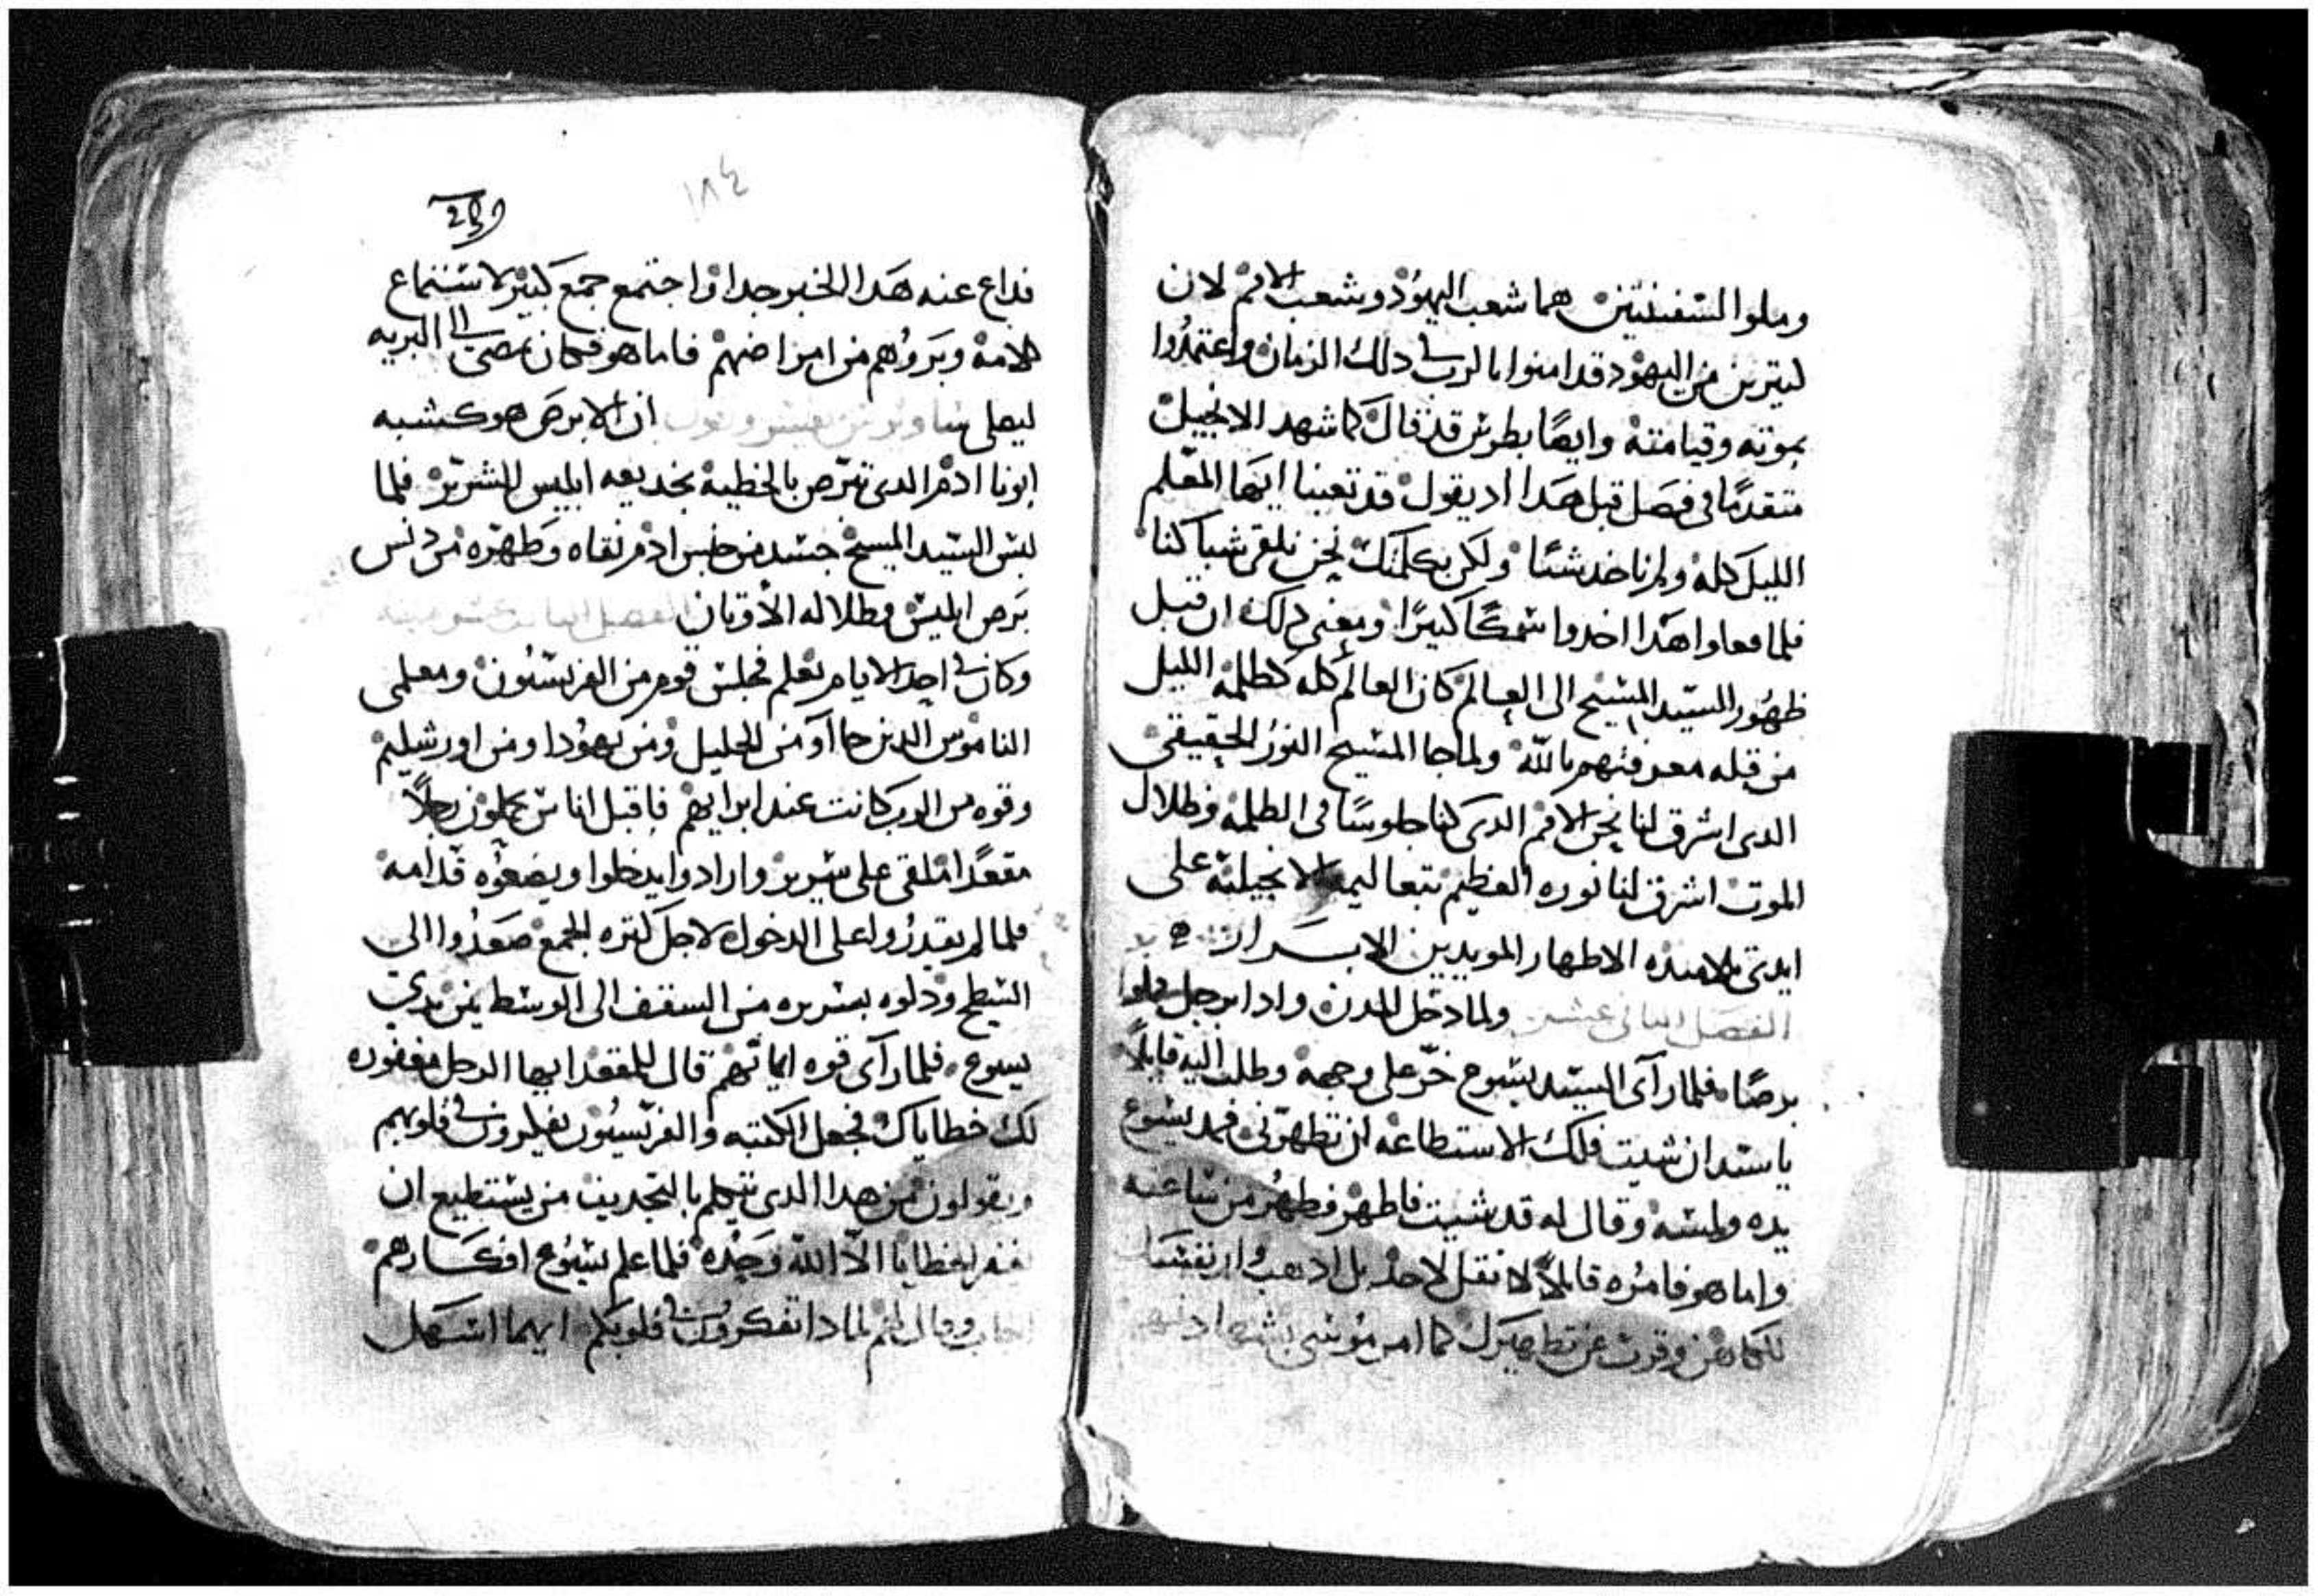 وملوا السفينتين هما شعب اليهود وشعب الامم لان
كتيرين من اليهود قد امنوا بالرب في دلك الزمان واعتمدوا
بموته وقيامته وايضًا بطرس قد قال كما شهد الانجيل
متقدمًا في فصل قبل هدا اد يقول قد تعبنا ايها المعلم
الليل كله ولم ناخد شيًا ولكن بكلمتك نحن نلقي شباكنا
فلما فعلوا هدا اخدوا سمكًا كبيرًا ومعني دلك ان قبل
ظهور السيد المسيح الى العالم كان العالم كله كظلمة الليل
من قبله معرفتهم بالله ولما جا المسيح النور الحقيقي
الدى اشرق لنا نحن الامم الدى كنا جلوسًا فى الظلمة وظلال
الموت اشرق لنا نوره العظيم بتعاليمه الانجيلية على
ايدى تلاميده الاطهار المويدين الابرار
الفصل التانى عشر ولما دخل المدن وادا برجل مملوا
برصًا فلما رآى السيد يسوع خرّ على وجهه وطلب اليه قايلًا
يا سيد ان شيت فلك الاستطاعه ان تطهرني فمد يسوع
يده ولمسه وقال له قد شيت فاطهر فطهر من ساعته
واما هو فامره قايلًا لا تقل لاحد بل ادهب وار نفسك
للكاهن وقرب عن تطهيرك كما امر موسي بشهادتهم
١٨٤
فداع عنه هدا الخبر جدا واجتمع جمع كبير لاستماع
كلامه ويبروهم من امراضهم فاما هو فكان يمضي الى البريه
ليصلى ان الابرص هو كشبه
ابونا ادم الدى تبرص بالخطية بخديعه ابليس الشرير فلما
لبس السيد المسيح جسد من جنس ادم نقاه وطهره من دنس
برص ابليس وظلاله الاوتان الفصل
وكان في احد الايام يعلم فجلس قوم من الفريسيون ومعلمى
الناموس الدين جاآو من الجليل ومن يهودا ومن اورشليم
وقوه من الرب كانت عند ابرايهم فاقبل اناس يحملون رجلًا
مقعدًا ملقى على سرير وارادوا يدخلوا ويضعوه قدامه
فلما لم يقدروا على الدخول لاجل كتره الجمع صعدوا الى
السطح ودلوه بسريره من السقف الى الوسط بين يدي
يسوع فلما رآى قوه ايمانهم قال للمقعد ايها الرجل مغفوره
لك خطاياك فجعل الكتبه والفريسيون يفكرون في قلوبهم
ويقولون من هدا الدى يتكلم بالتجديف من يستطيع ان
يغفر الخطايا الّا الله وحده فلما علم يسوع افكارهم
اجاب وقال لهم لمادا تفكرون في قلوبكم ايهما اسهل